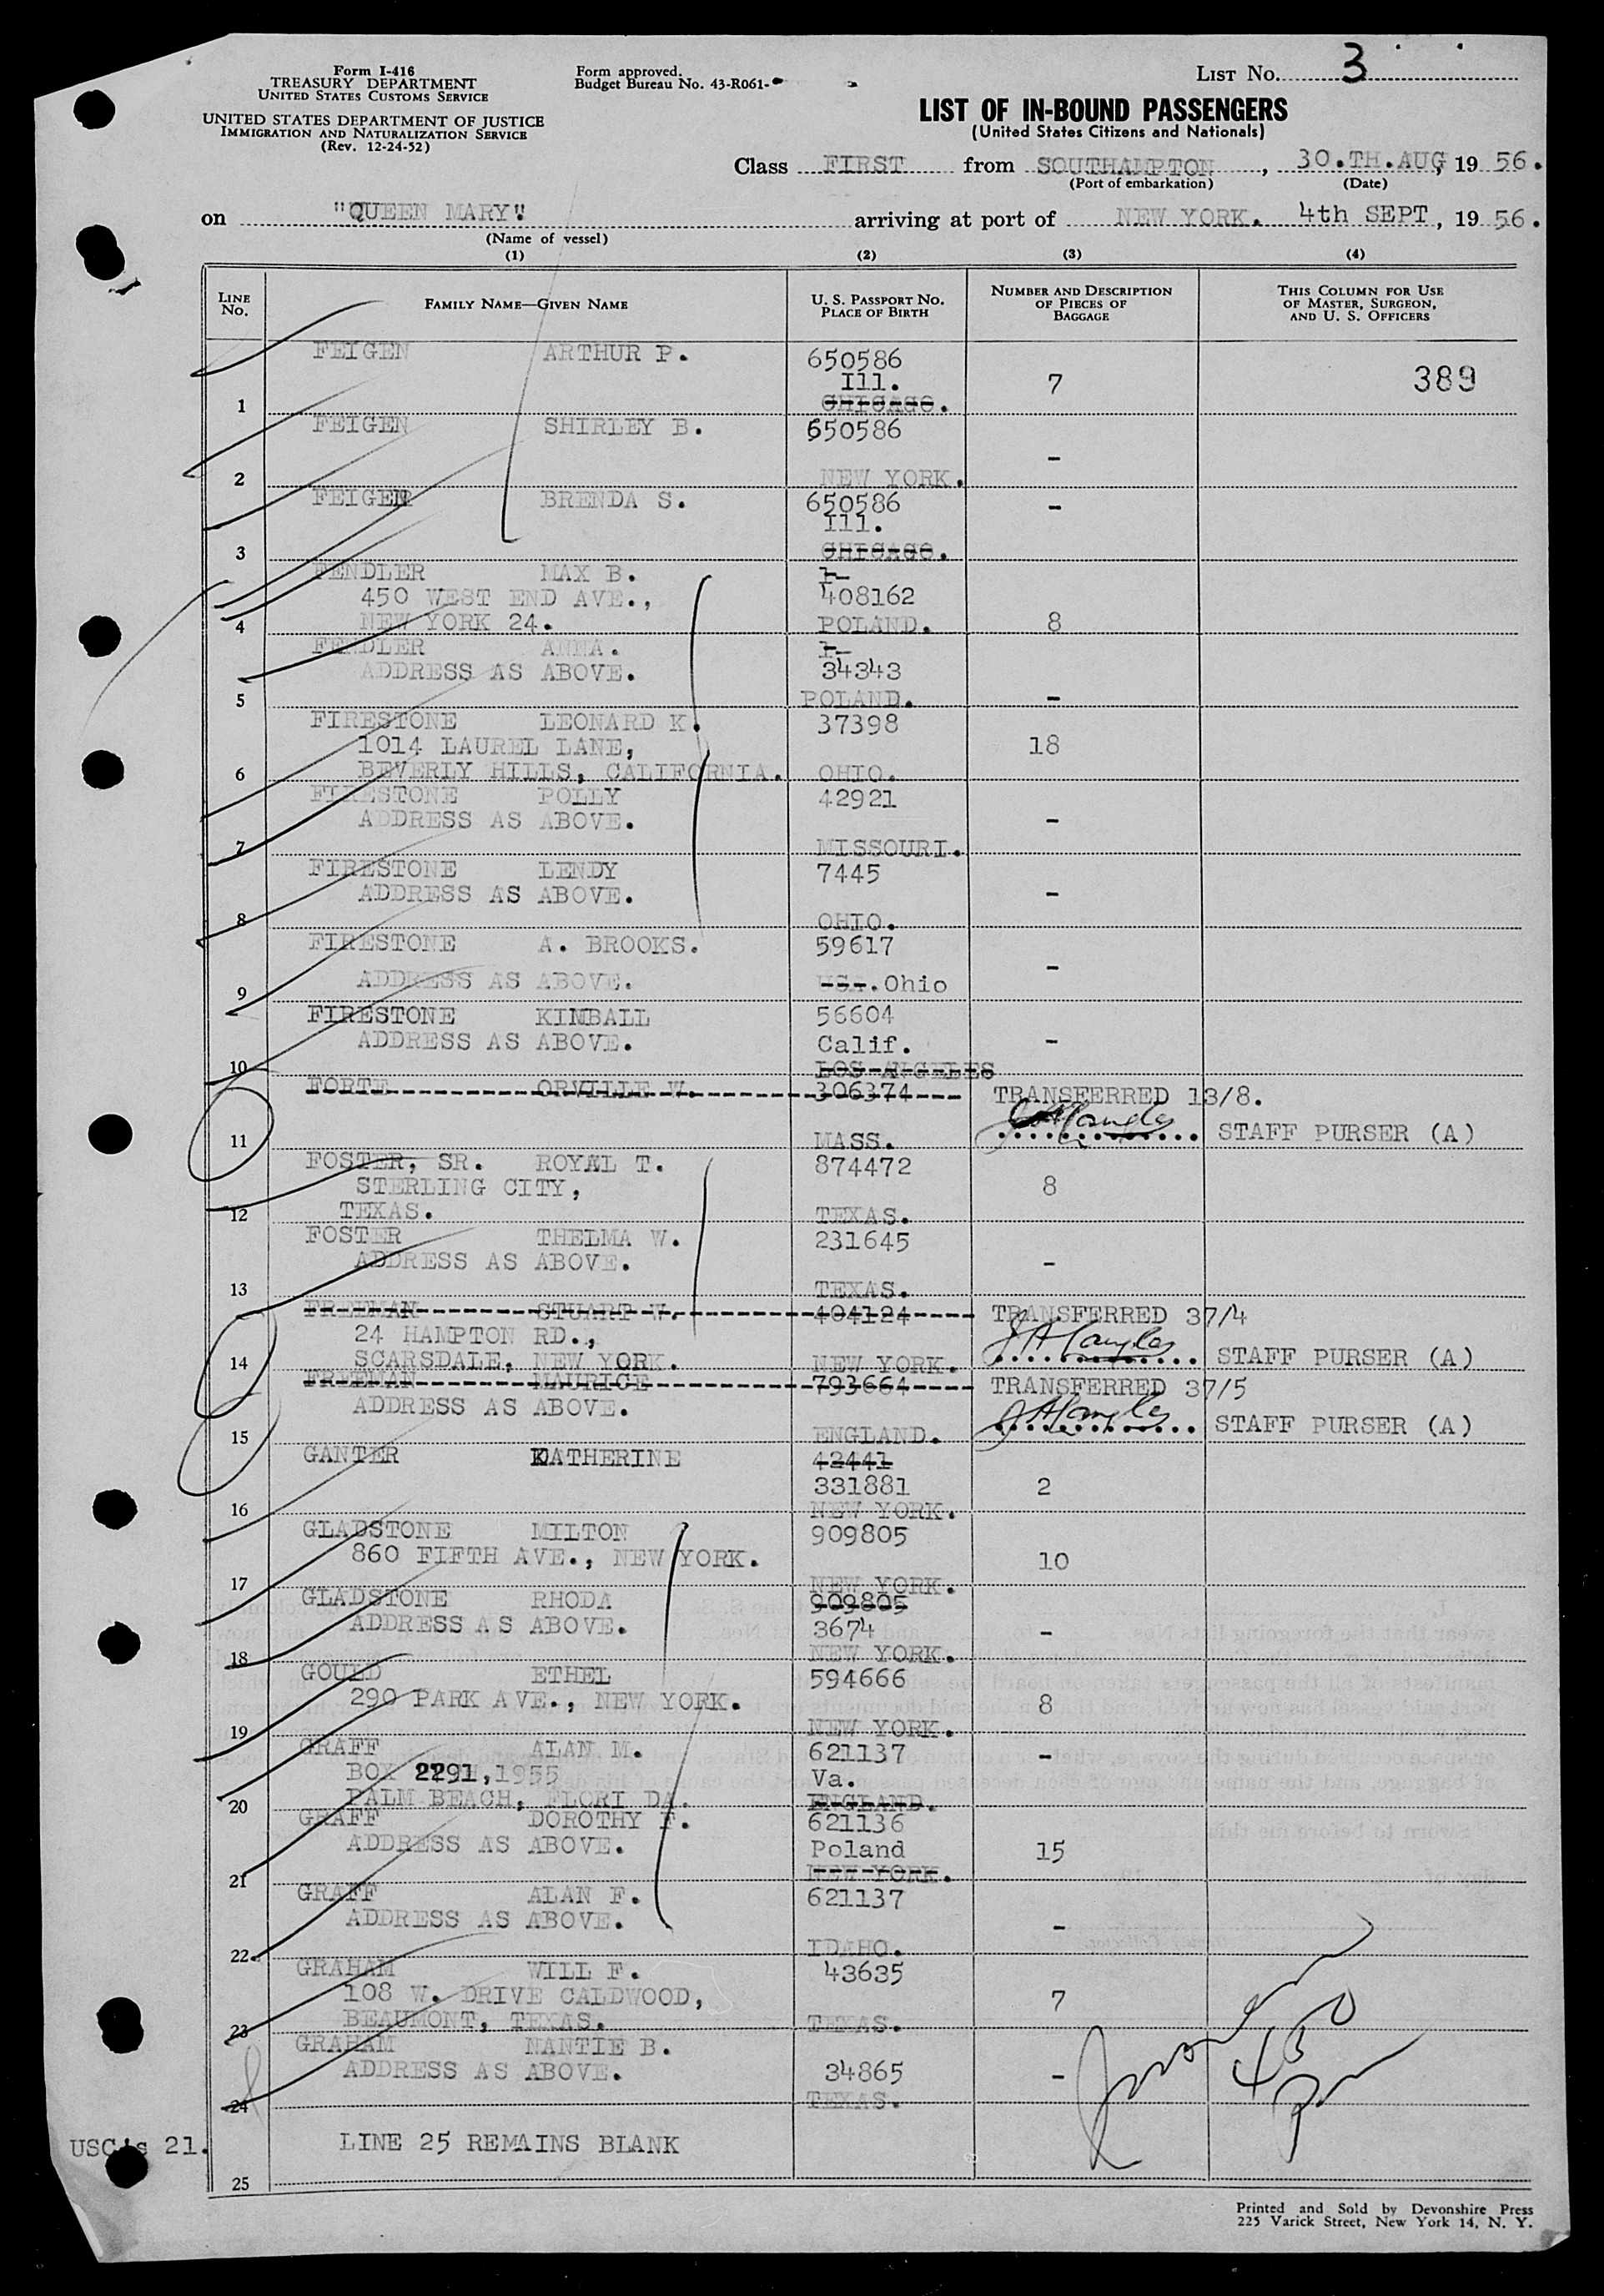 Form I-416
TREASURY DEPARTMENT
UNITED STATES CUSTOMS SERVICE
UNITED STATES DEPARTMENT OF JUSTICE
IMMIGRATION AND NATURALIZATION SERVICE
(Rev. 12-24-52)
Form approved.
Budget Bureau No. 43-R061-
LIST NO. 3
LIST OF IN-BOUND PASSENGERS
(United States Citizens and Nationals)
Class FIRST from SOUTHAMPTON, 30.TH.AUG, 1956.
(Port of embarkation) (Date)
on "QUEEN MARY". arriving at port of NEW YORK. 4th SEPT, 1956.
(Name of vessel)
(1) (2) (3) (4)
LINE No. FAMILY NAME—GIVEN NAME U. S. PASSPORT NO. PLACE OF BIRTH NUMBER AND DESCRIPTION OF PIECES OF BAGGAGE THIS COLUMN FOR USE OF MASTER, SURGEON, AND U. S. OFFICERS
FEIGEN ARTHUR P. 650586
Ill. 7 389
1 CHICAGO.
FEIGEN SHIRLEY B. 650586
-
2 NEW YORK.
FEIGEN BRENDA S. 650586 -
Ill.
3 CHICAGO.
FENDLER MAX B.
450 WEST END AVE., 408162
4 NEW YORK 24. POLAND. 8
FENDLER ANNA.
ADDRESS AS ABOVE. 34343
5 POLAND. -
FIRESTONE LEONARD K. 37398
1014 LAUREL LANE, 18
6 BEVERLY HILLS, CALIFORNIA. OHIO.
FIRESTONE POLLY 42921
ADDRESS AS ABOVE. -
7 MISSOURI.
FIRESTONE LENDY 7445
ADDRESS AS ABOVE. -
8 OHIO.
FIRESTONE A. BROOKS. 59617
-
9 ADDRESS AS ABOVE. USA. Ohio
FIRESTONE KIMBALL 56604
ADDRESS AS ABOVE. Calif. -
10 LOS ANGELES
FORTE ORVILLE W. 306374 TRANSFERRED 13/8.
11 MASS. STAFF PURSER (A)
FOSTER, SR. ROYAL T. 874472
STERLING CITY, 8
12 TEXAS. TEXAS.
FOSTER THELMA W. 231645
ADDRESS AS ABOVE. -
13 TEXAS.
FREEMAN STUART W. 404124 TRANSFERRED 37/4
24 HAMPTON RD.,
14 SCARSDALE, NEW YORK. NEW YORK. STAFF PURSER (A)
FREEMAN MAURICE 793664 TRANSFERRED 37/5
ADDRESS AS ABOVE.
15 ENGLAND. STAFF PURSER (A)
GANTER KATHERINE 42441
331881 2
16 NEW YORK.
GLADSTONE MILTON 909805
860 FIFTH AVE., NEW YORK. 10
17 NEW YORK.
GLADSTONE RHODA 909805
ADDRESS AS ABOVE. 3674 -
18 NEW YORK.
GOULD ETHEL 594666
290 PARK AVE., NEW YORK. 8
19 NEW YORK.
GRAFF ALAN M. 621137 -
BOX 2291,1955 Va.
20 PALM BEACH, FLORI DA. ENGLAND.
GRAFF DOROTHY F. 621136
ADDRESS AS ABOVE. Poland 15
21 NEW YORK.
GRAFF ALAN F. 621137
ADDRESS AS ABOVE. -
22 IDAHO.
GRAHAM WILL F. 43635
108 W. DRIVE CALDWOOD, 7
23 BEAUMONT, TEXAS. TEXAS.
GRAHAM NANTIE B.
ADDRESS AS ABOVE. 34865 -
24 TEXAS.
USC's 21. LINE 25 REMAINS BLANK
25
Printed and Sold by Devonshire Press
225 Varick Street, New York 14, N. Y.